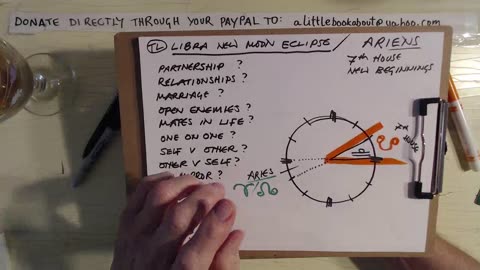 DONATE DIRECTLY THROUGH YOUR PAYPAL TO: alittlebookabout@yahoo.com
TL LIBRA NEW MOON ECLIPSE / ARIENS
7TH HOUSE
NEW BEGINNINGS
PARTNERSHIP ?
RELATIONSHIPS ?
MARRIAGE ?
OPEN ENEMIES ?
MATES IN LIFE ?
ONE ON ONE ?
SELF V OTHER ?
OTHER V SELF ?
ARIES
7TH HOUSE